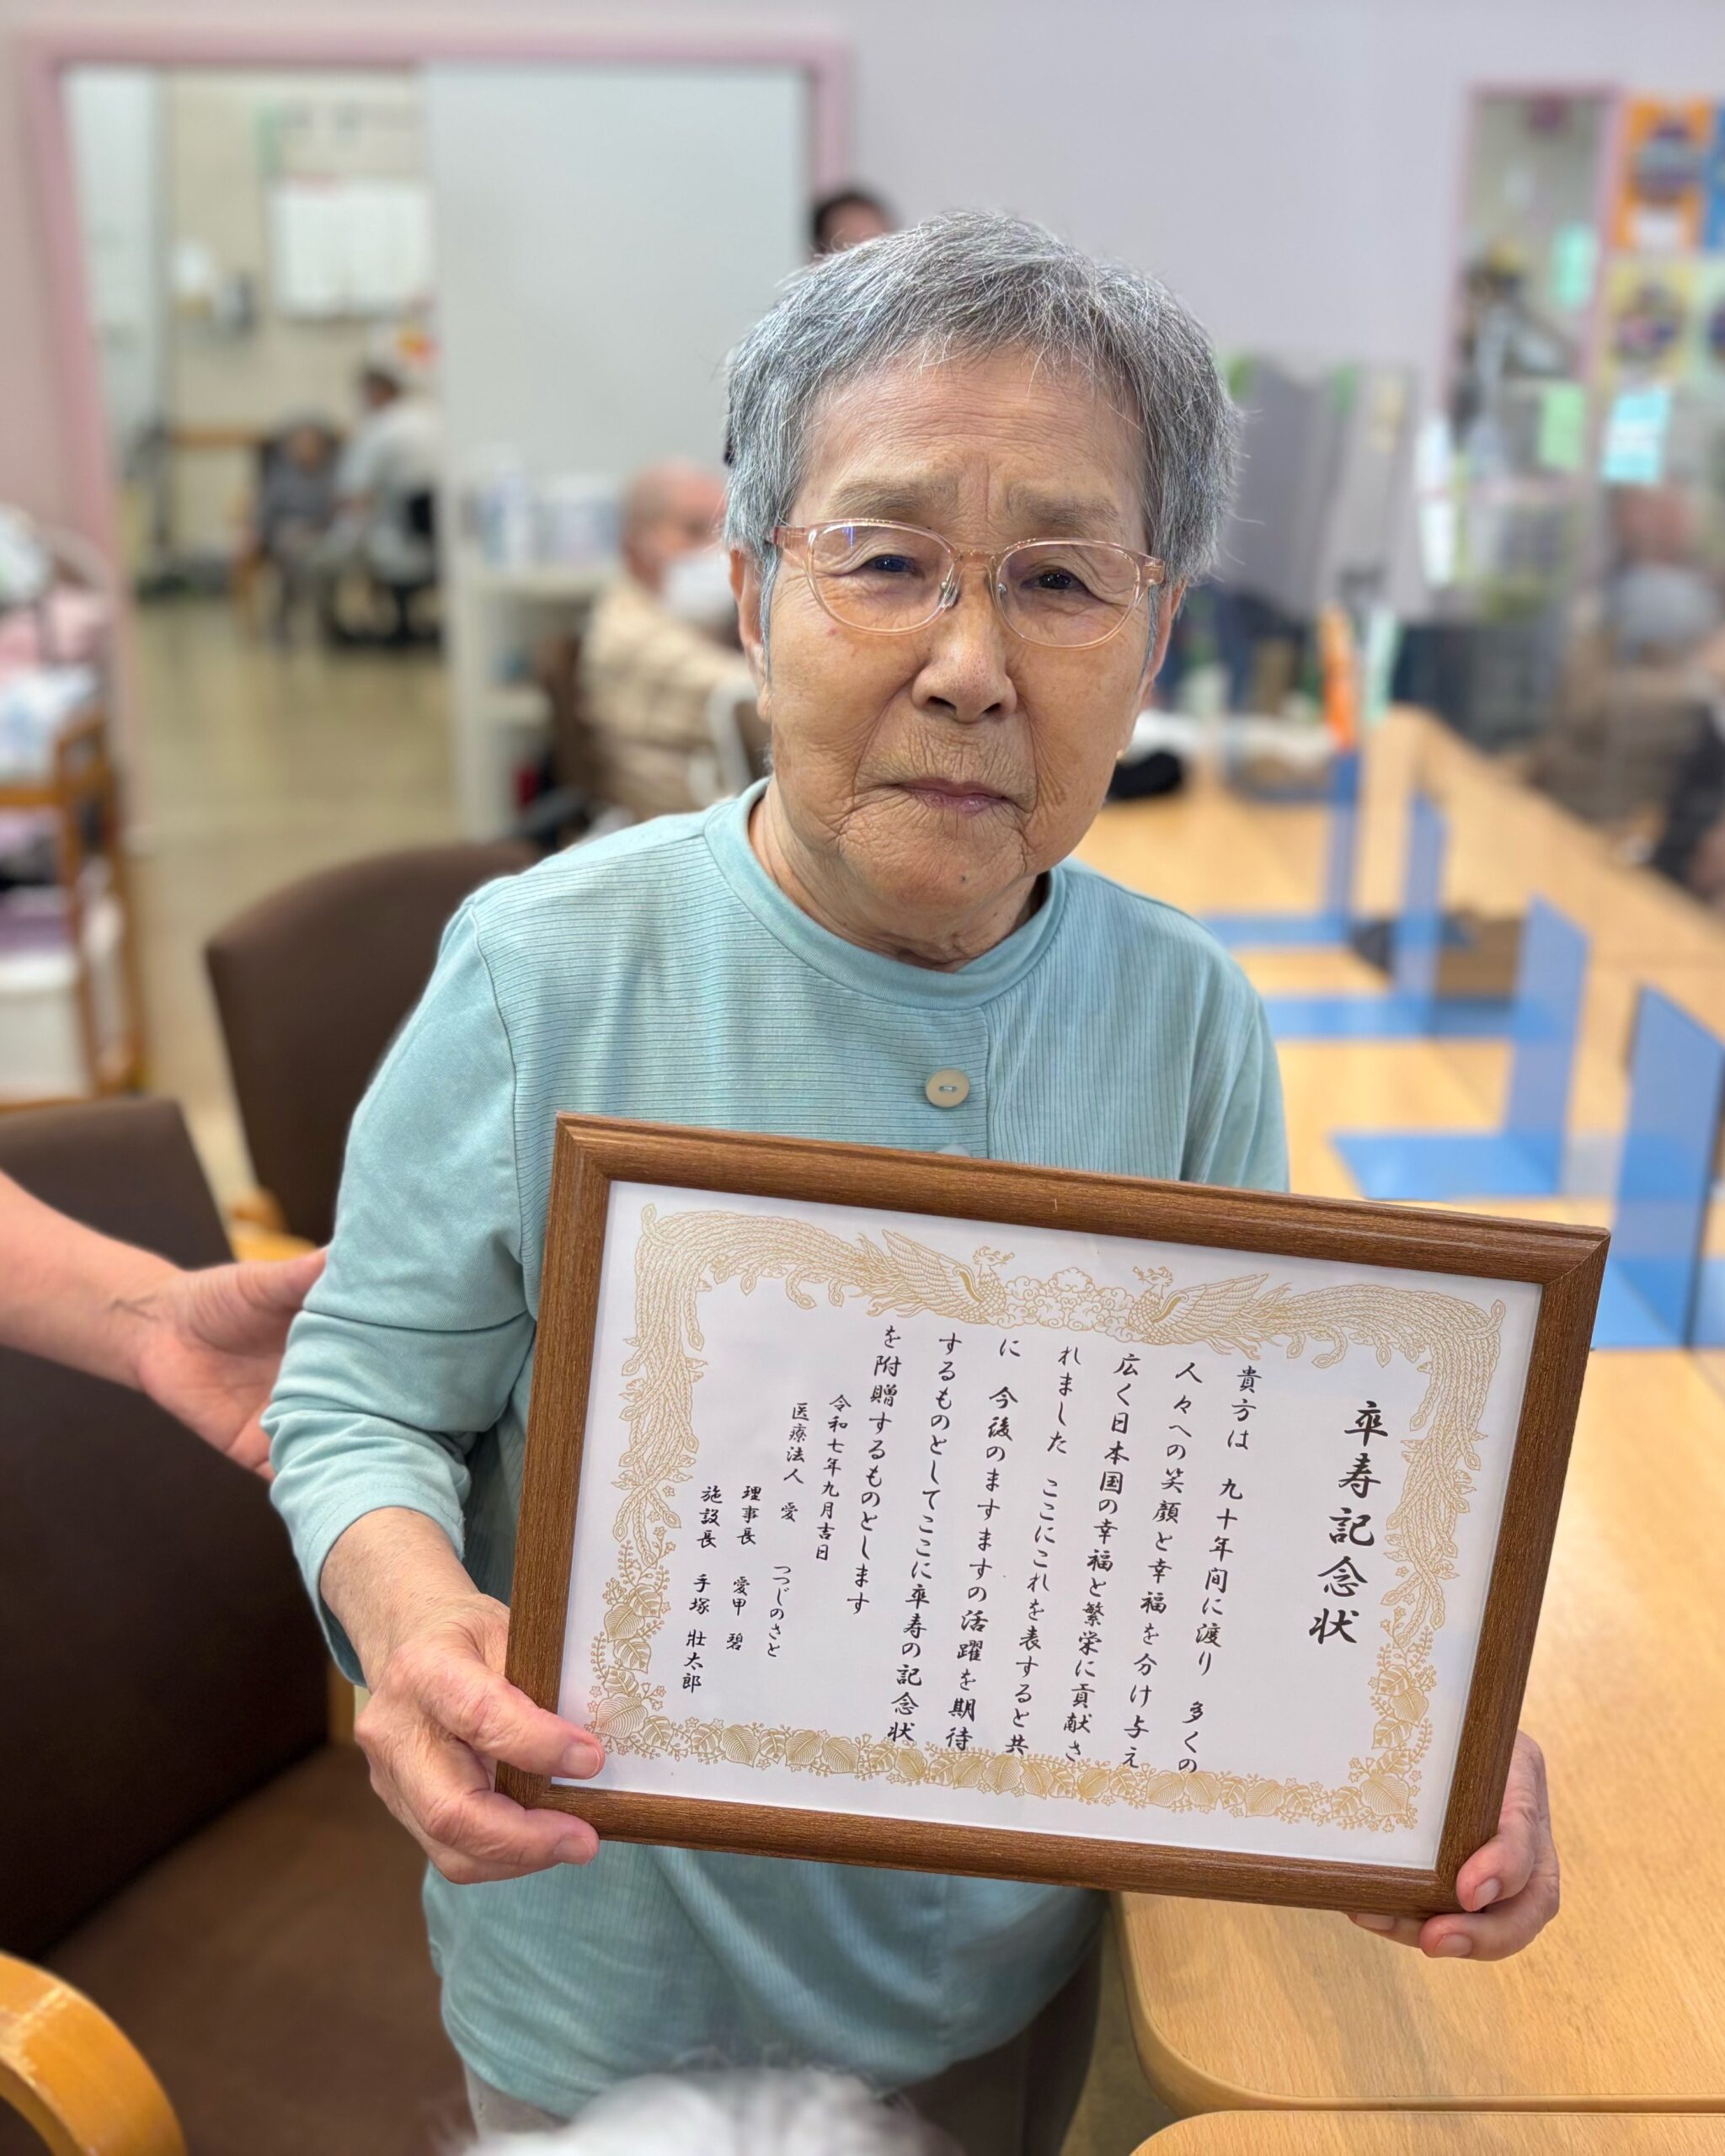 卒寿記念状
貴方は 九十年間に渡り 多くの
人々への笑顔と幸福を分け与え
広く日本国の幸福と繁栄に貢献さ
れました ここにこれを表すると共
に 今後のますますの活躍を期待
するものとしてここに卒寿の記念状
を附贈するものとします
令和七年九月吉日
医療法人 愛 つつじのさと
理事長 愛甲 碧
施設長 手塚 壮太郎